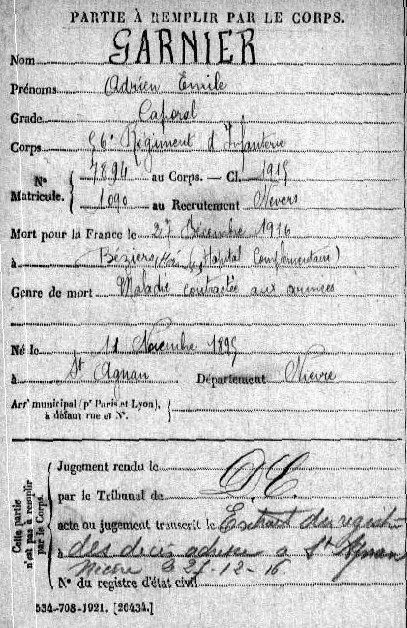 PARTIE À REMPLIR PAR LE CORPS.
Nom GARNIER
Prénoms Adrien Emile
Grade Caporal
Corps 56e Régiment d'Infanterie
N° Matricule. { 7894 au Corps. — Cl. 1915
1090 au Recrutement Nevers
Mort pour la France le 27 Décembre 1916
à Béziers (Hôpital Complémentaire)
Genre de mort Maladie contractée aux armées
Né le 11 Novembre 1895
à St Agnan Département Nièvre
Arrt municipal (pr Paris et Lyon),
à défaut rue et N°.
Cette partie n'est pas à remplir par le Corps.
Jugement rendu le
par le Tribunal de D.C.
acte ou jugement transcrit le Extrait du registre
à des décès adressé à St Agnan
Nièvre le 27-12-16
N° du registre d'état civil
534-708-1921. [26434.]